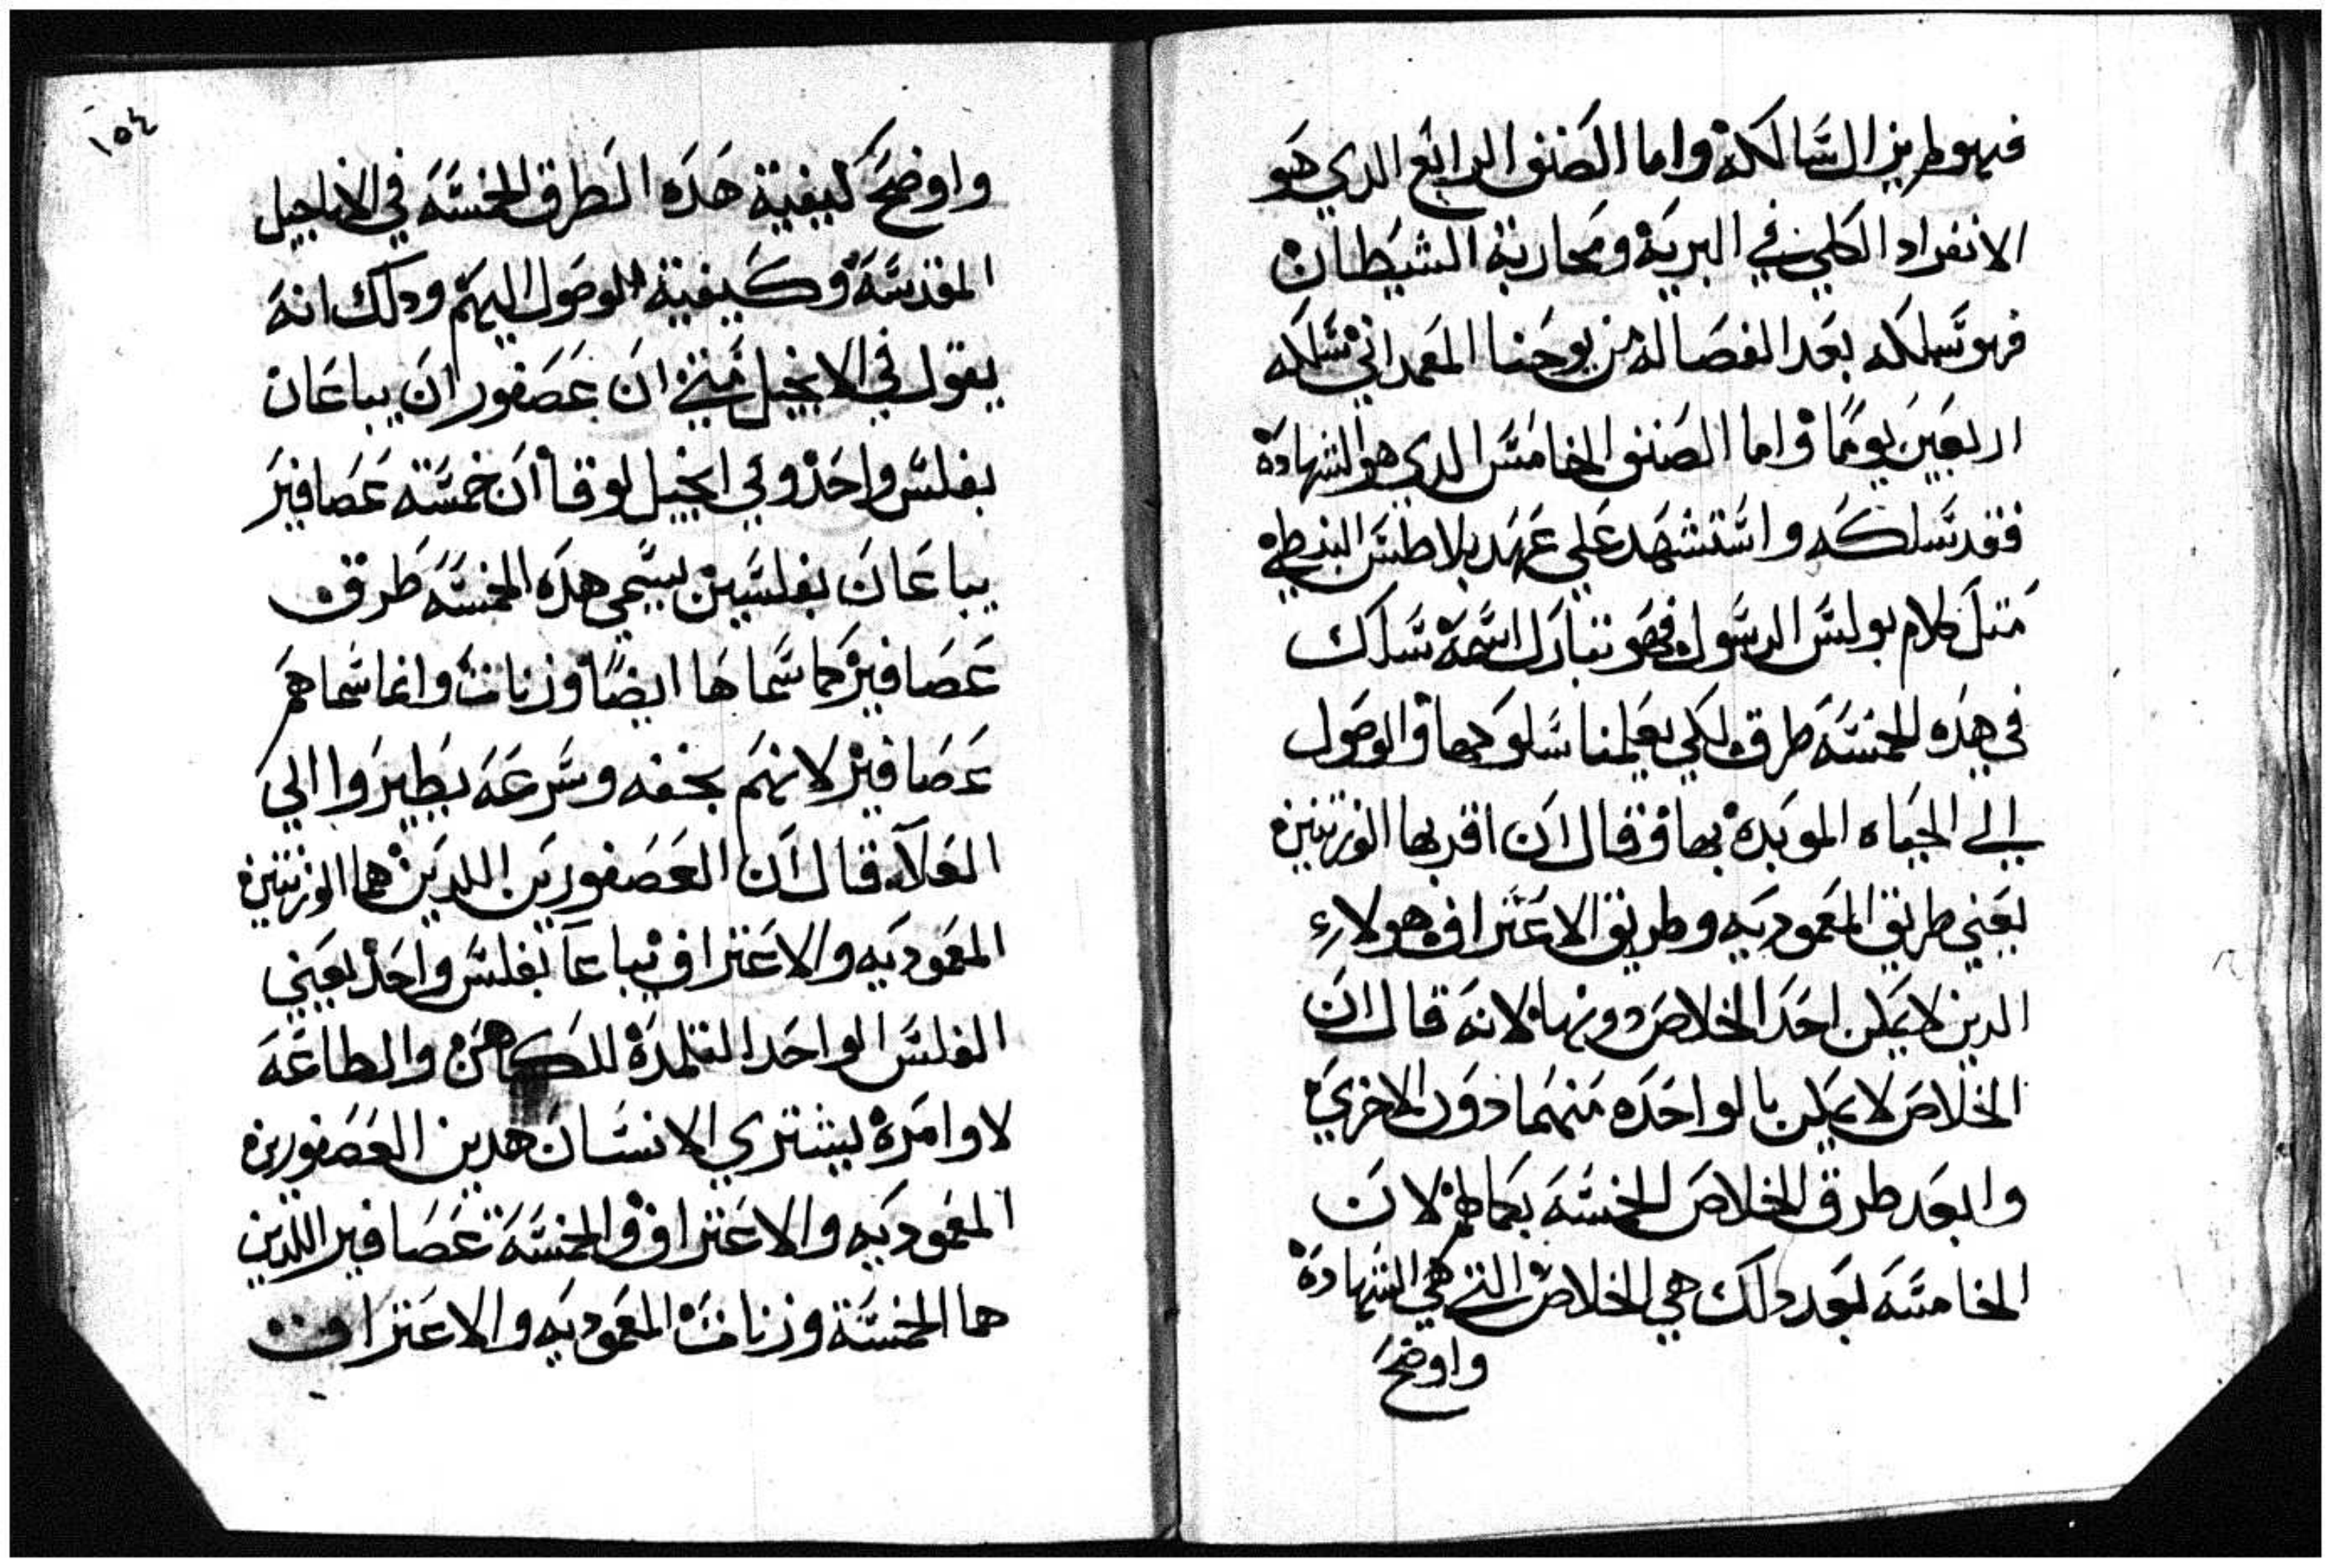 فهو طريق السالكه واما الصنف الرابع الدي هو
الانفراد الكلي في البريه ومحاربة الشيطان
فهو سلكه بعد انفصاله من يوحنا المعمداني سلكه
اربعين يومًا واما الصنف الخامس الدي هو الشهاده
فقد سلكه واستشهد علي عهد بلاطس البنطي
متل كلام بولس الرسول فهو تبارك اسمه سلك
في هده الخمسه طرق لكي يعلمنا سلوكها والوصول
الي الحياه الموبده بها وقال ان اقربها الوزنتين
يعني طريق المعموديه وطريق الاعتراف هولاء
الدين لا يمكن احد الخلاص دونها لانه قال ان
الخلاص لا يمكن بالواحده منهما دون الاخري
وابعد طرق الخلاص الخمسه بكمالهم لان
الخامسه بعد دلك هي الخلاص التي هي الشهاده
واوضح
١٥٤
واوضح كيفية هده الطرق الخمسه في الاناجيل
المقدسه وكيفية الوصول اليهم ودلك انه
يقول في الانجيل متي ان عصفوران يباعان
بفلس واحد وفي انجيل لوقا ان خمسة عصافير
يباعان بفلسين يسمي هده الخمسه طرق
عصافير كما سماها ايضًا وزنات وانما سماهم
عصافير لانهم بخفه وسرعه يطيروا الي
العلا قال ان العصفورين اللدين هما الوزنتين
المعموديه والاعتراف يباعا بفلس واحد يعني
الفلس الواحد التلمدة للكاهن والطاعه
لاوامره يشتري الانسان هدين العصفورين
المعموديه والاعتراف والخمسة عصافير اللدين
هما الخمسة وزنات المعموديه والاعتراف